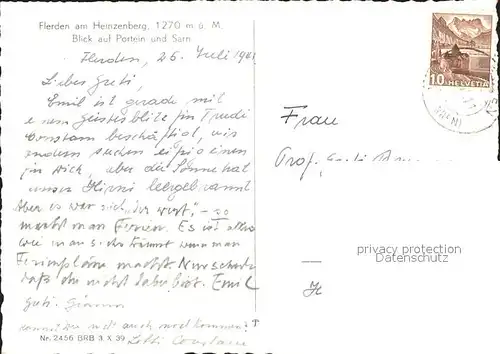 Flerden am Heinzenberg, 1270 m ü. M.
Blick auf Portein und Sarn
Flerden, 25. Juli 1941
Liebes Greti,
Emil ist gerade mit
einem Geistesblitz für Trudi
Constam beschäftigt, wir
andern suchen
Dich, aber die Sonne hat
unsere Hirni leergebrannt
Aber es war sich "der wert", - so
macht man Ferien. Es ist alles
wie man sichs träumt wenn man
Ferienpläne macht. Nur schade
daß du nicht dabei bist. Emil
Gianna
nicht auch noch kommen?
Letti Constam
Nr. 2456 BRB 3 X 39
10 HELVETIA
Frau
Prof.
privacy protection
Datenschutz